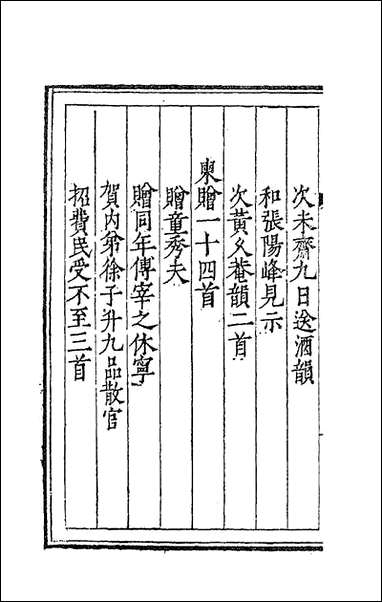 次未齋九日送酒韻
和張陽峰見示
次黃久菴韻二首
柬贈一十四首
贈童秀夫
贈同年傅宰之休寧
賀内弟徐子升九品散官
招費民受不至三首